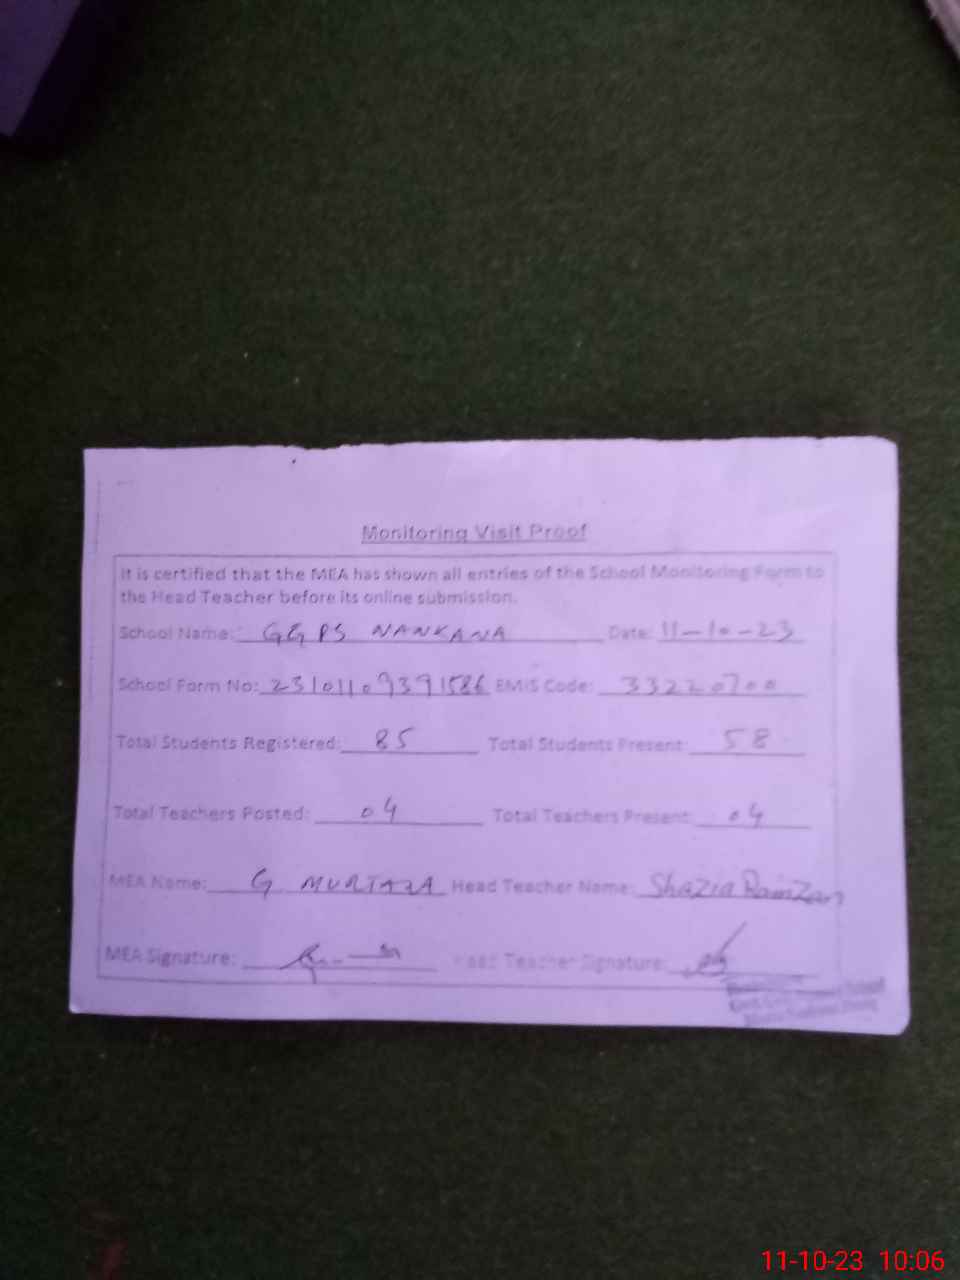 Monitoring Visit Proof
It is certified that the MEA has shown all entries of the School Monitoring Form to
the Head Teacher before its online submission.
School Name: GGPS NANKANA Date: 11-10-23
School Form No: 23101109391586 EMIS Code: 33220700
Total Students Registered: 85 Total Students Present: 58
Total Teachers Posted: 04 Total Teachers Present: 04
MEA Name: G. MURTAZA Head Teacher Name: Shazia Ramzan
MEA Signature: Head Teacher Signature:
11-10-23 10:06